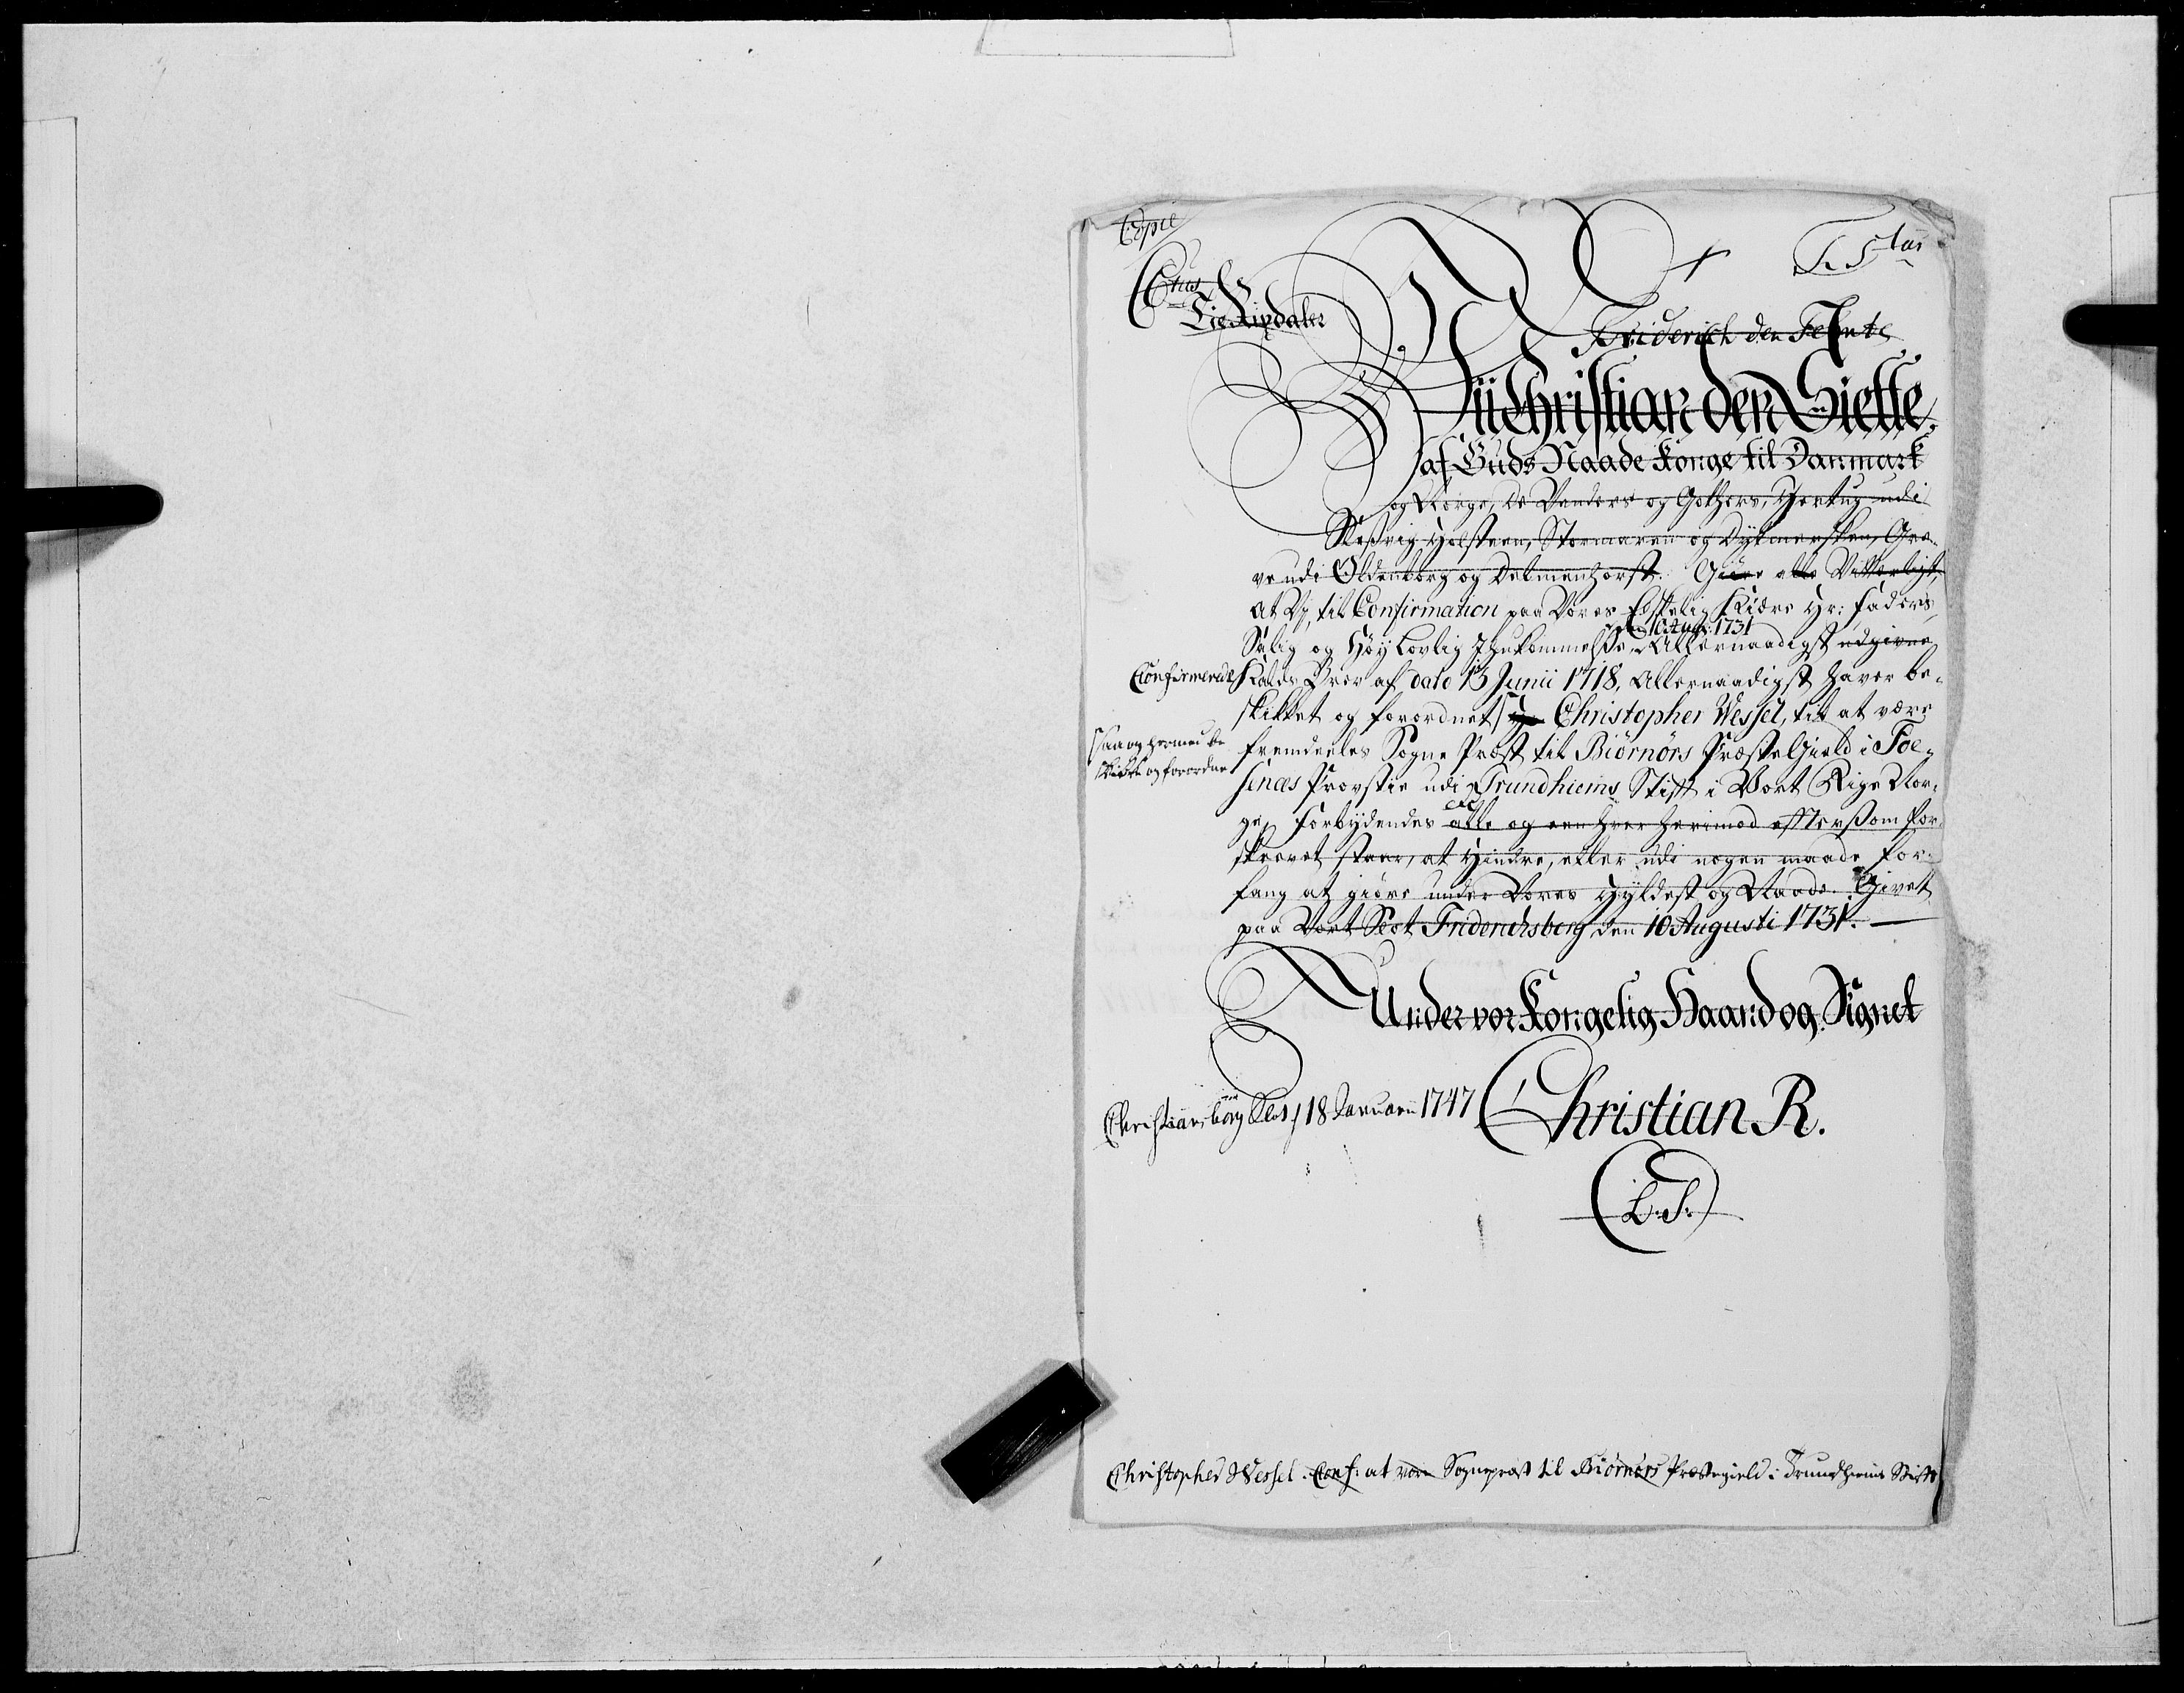 Copie
F 5tus
C 6tus
Tie Rixdaler
Friderich den Femte
Vii Christian den Siette,
af Guds Naade Konge til Danmark
og Norge, de Venders og Gothers, Hertug udi
Sleßvig Holsteen, Stormaren og Dytmersken, Gre-
ve udi Oldenborg og Delmenhorst. Giøre alle Vitterligt,
At Vj, til Confirmation paa Vores Elskelig Kiære Hr: Faders,
10 Aug: 1731
Salig og Høylovlig Ihukommelse, Allernaadigst udgivne
Confirmerede Kalds Brev af dato 13 Junii 1718, Allernaadigst haver be-
skikket og forordnet, Hr Christopher Wessel, til at være
saa og hermed be
skikke og forordne
fremdeeles Sogne Præst til Biørnørs Præstegield i Foe-
senæs Provstie udi Trundhiems Stift i Vort Rige Nor-
ge, Forbydendes alle og een hver herimod efftersom for-
etc
skrevet staar, at Hindre, eller udi nogen maade For-
fang at giøre under Vores Hyldest og Naade. Givet
paa Vort Slot Friderichsberg den 10 Augusti 1731.
Under vor Kongelig Haand og Signet
Christiansborg Slot 18 Januarii 1747
Christian R.
L.S.
Christopher Wessel. Conf: at være Sognepræst til Biørnørs Præstegield i Trundhiems Stift